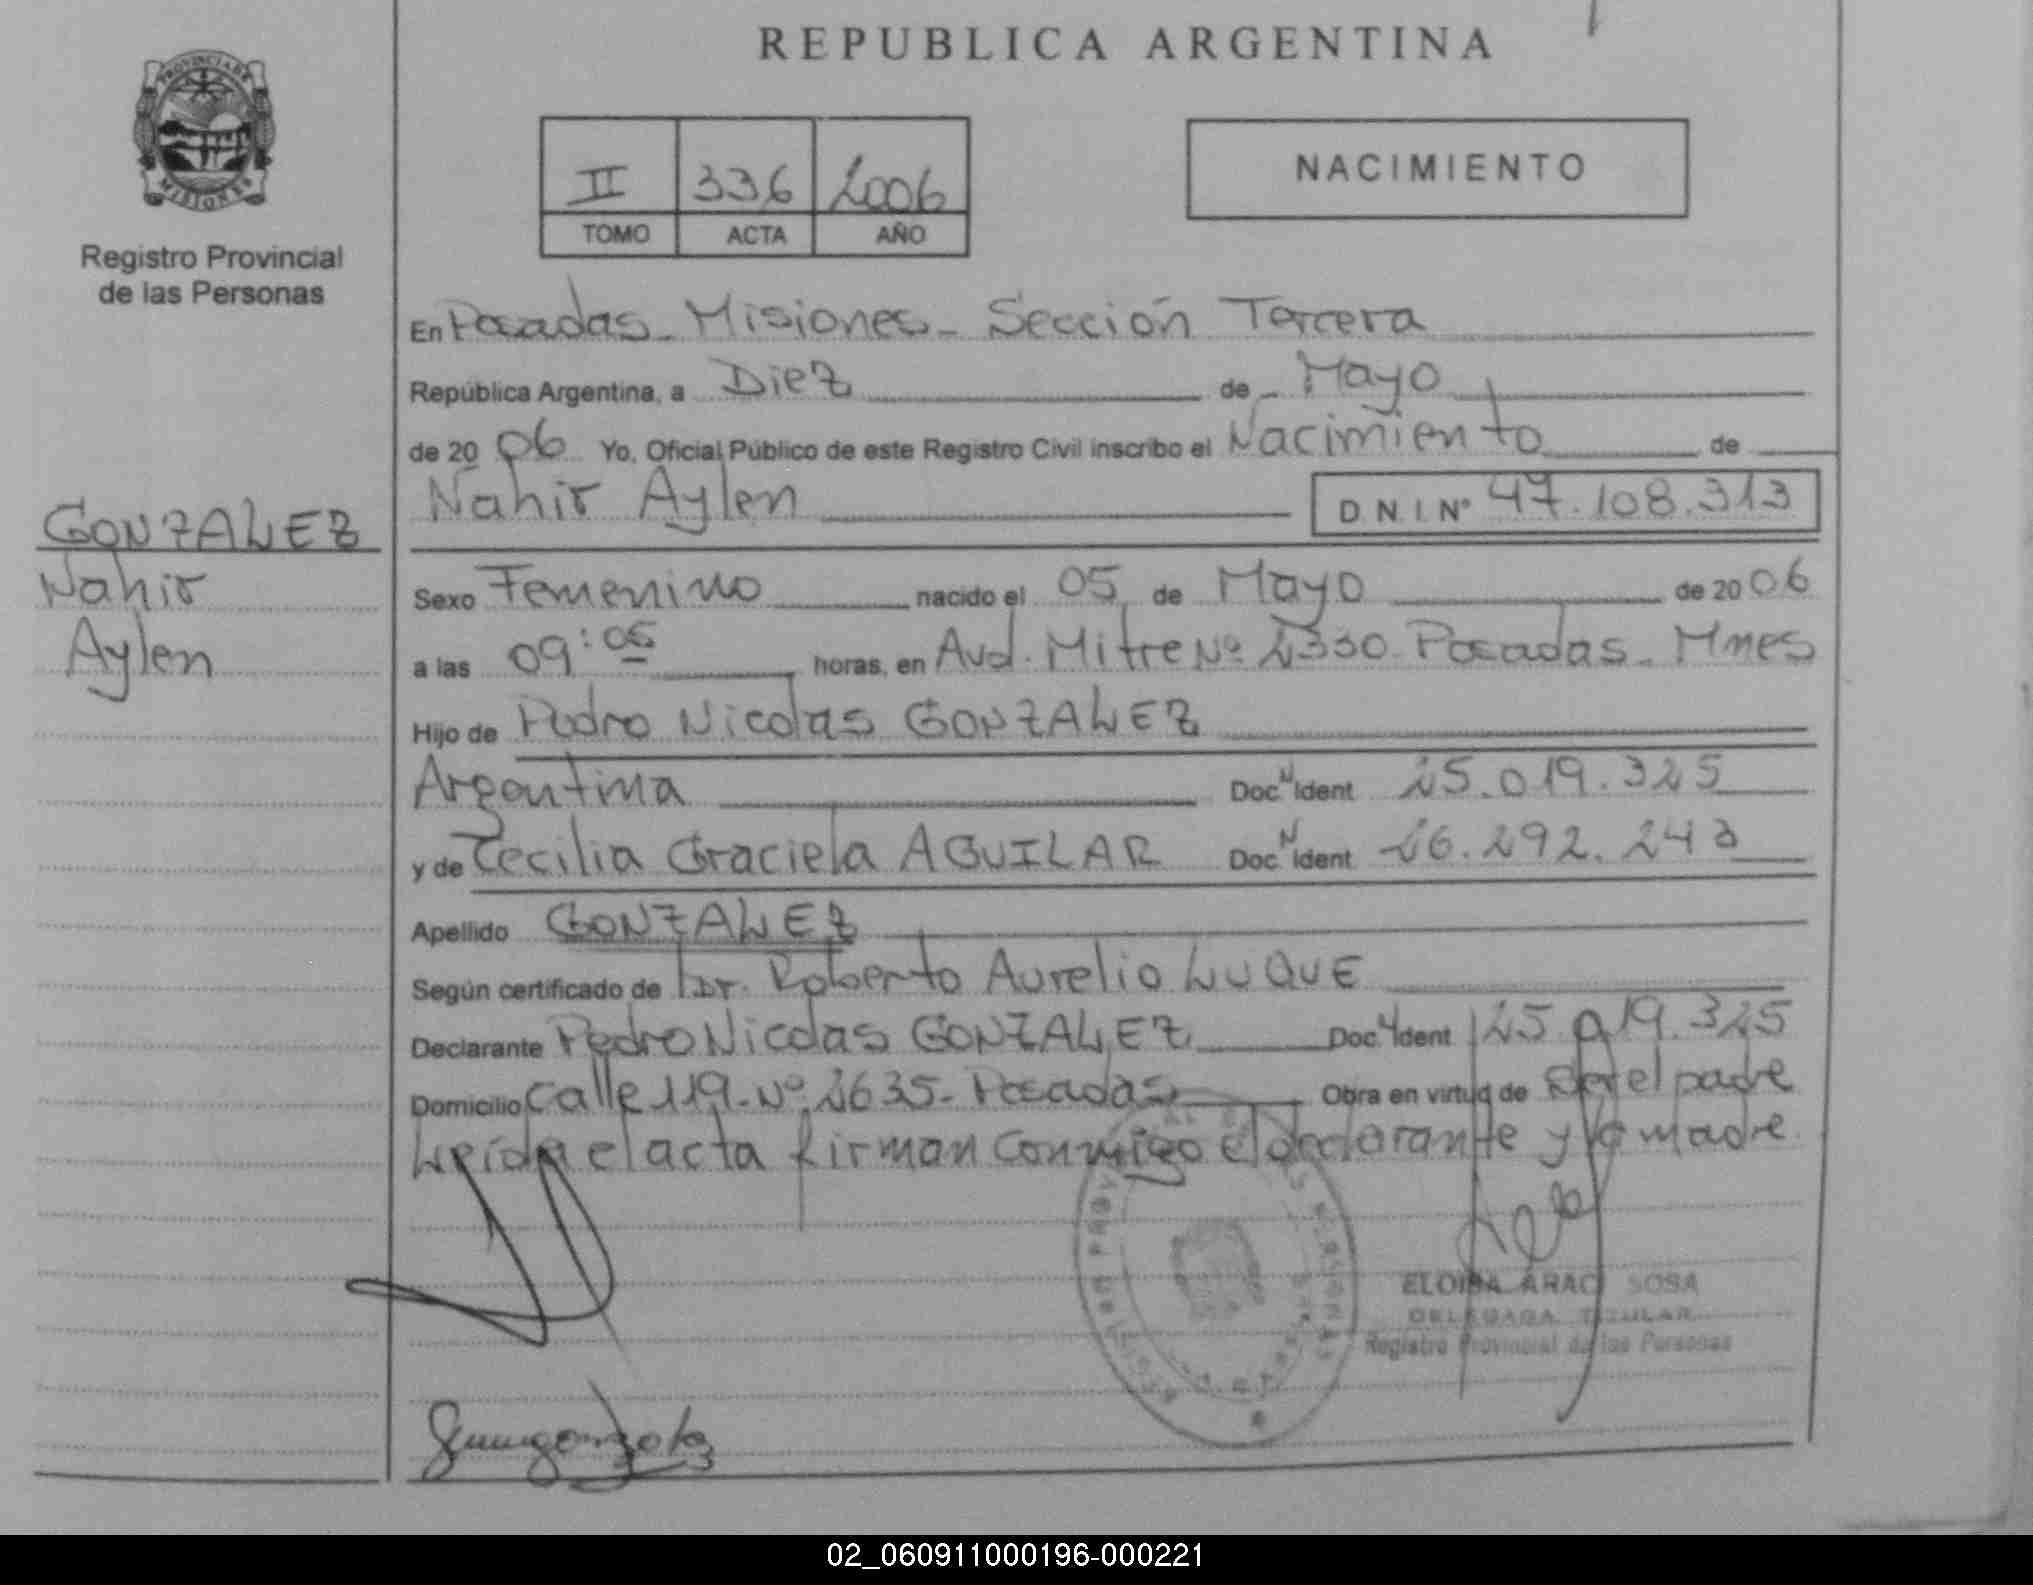 REPUBLICA ARGENTINA
PROVINCIA DE
MISIONES
Registro Provincial
de las Personas
II 336 2006
TOMO ACTA AÑO
NACIMIENTO
En Posadas - Misiones - Sección Tercera
República Argentina, a Diez de Mayo
de 20 06 Yo, Oficial Público de este Registro Civil inscribo el Nacimiento de
Nahir Aylen D.N.I. Nº 47.108.313
GONZALEZ
Nahir
Aylen
Sexo Femenino nacido el 05 de Mayo de 20 06
a las 09:05 horas, en Avd. Mitre Nº 2330 Posadas - Mnes
Hijo de Pedro Nicolas GONZALEZ
Argentina Doc. N Ident 25.019.325
y de Cecilia Graciela AGUILAR Doc. N Ident 26.292.243
Apellido GONZALEZ
Según certificado de Dr. Roberto Aurelio LUQUE
Declarante Pedro Nicolas GONZALEZ Doc. Ident 25.019.325
Domicilio Calle 119 - Nº 2635 - Posadas Obra en virtud de Ser el padre
Leída el acta firman conmigo el declarante y la madre
ELOISA ARACI SOSA
DELEGADA TITULAR
Registro Provincial de las Personas
02_060911000196-000221